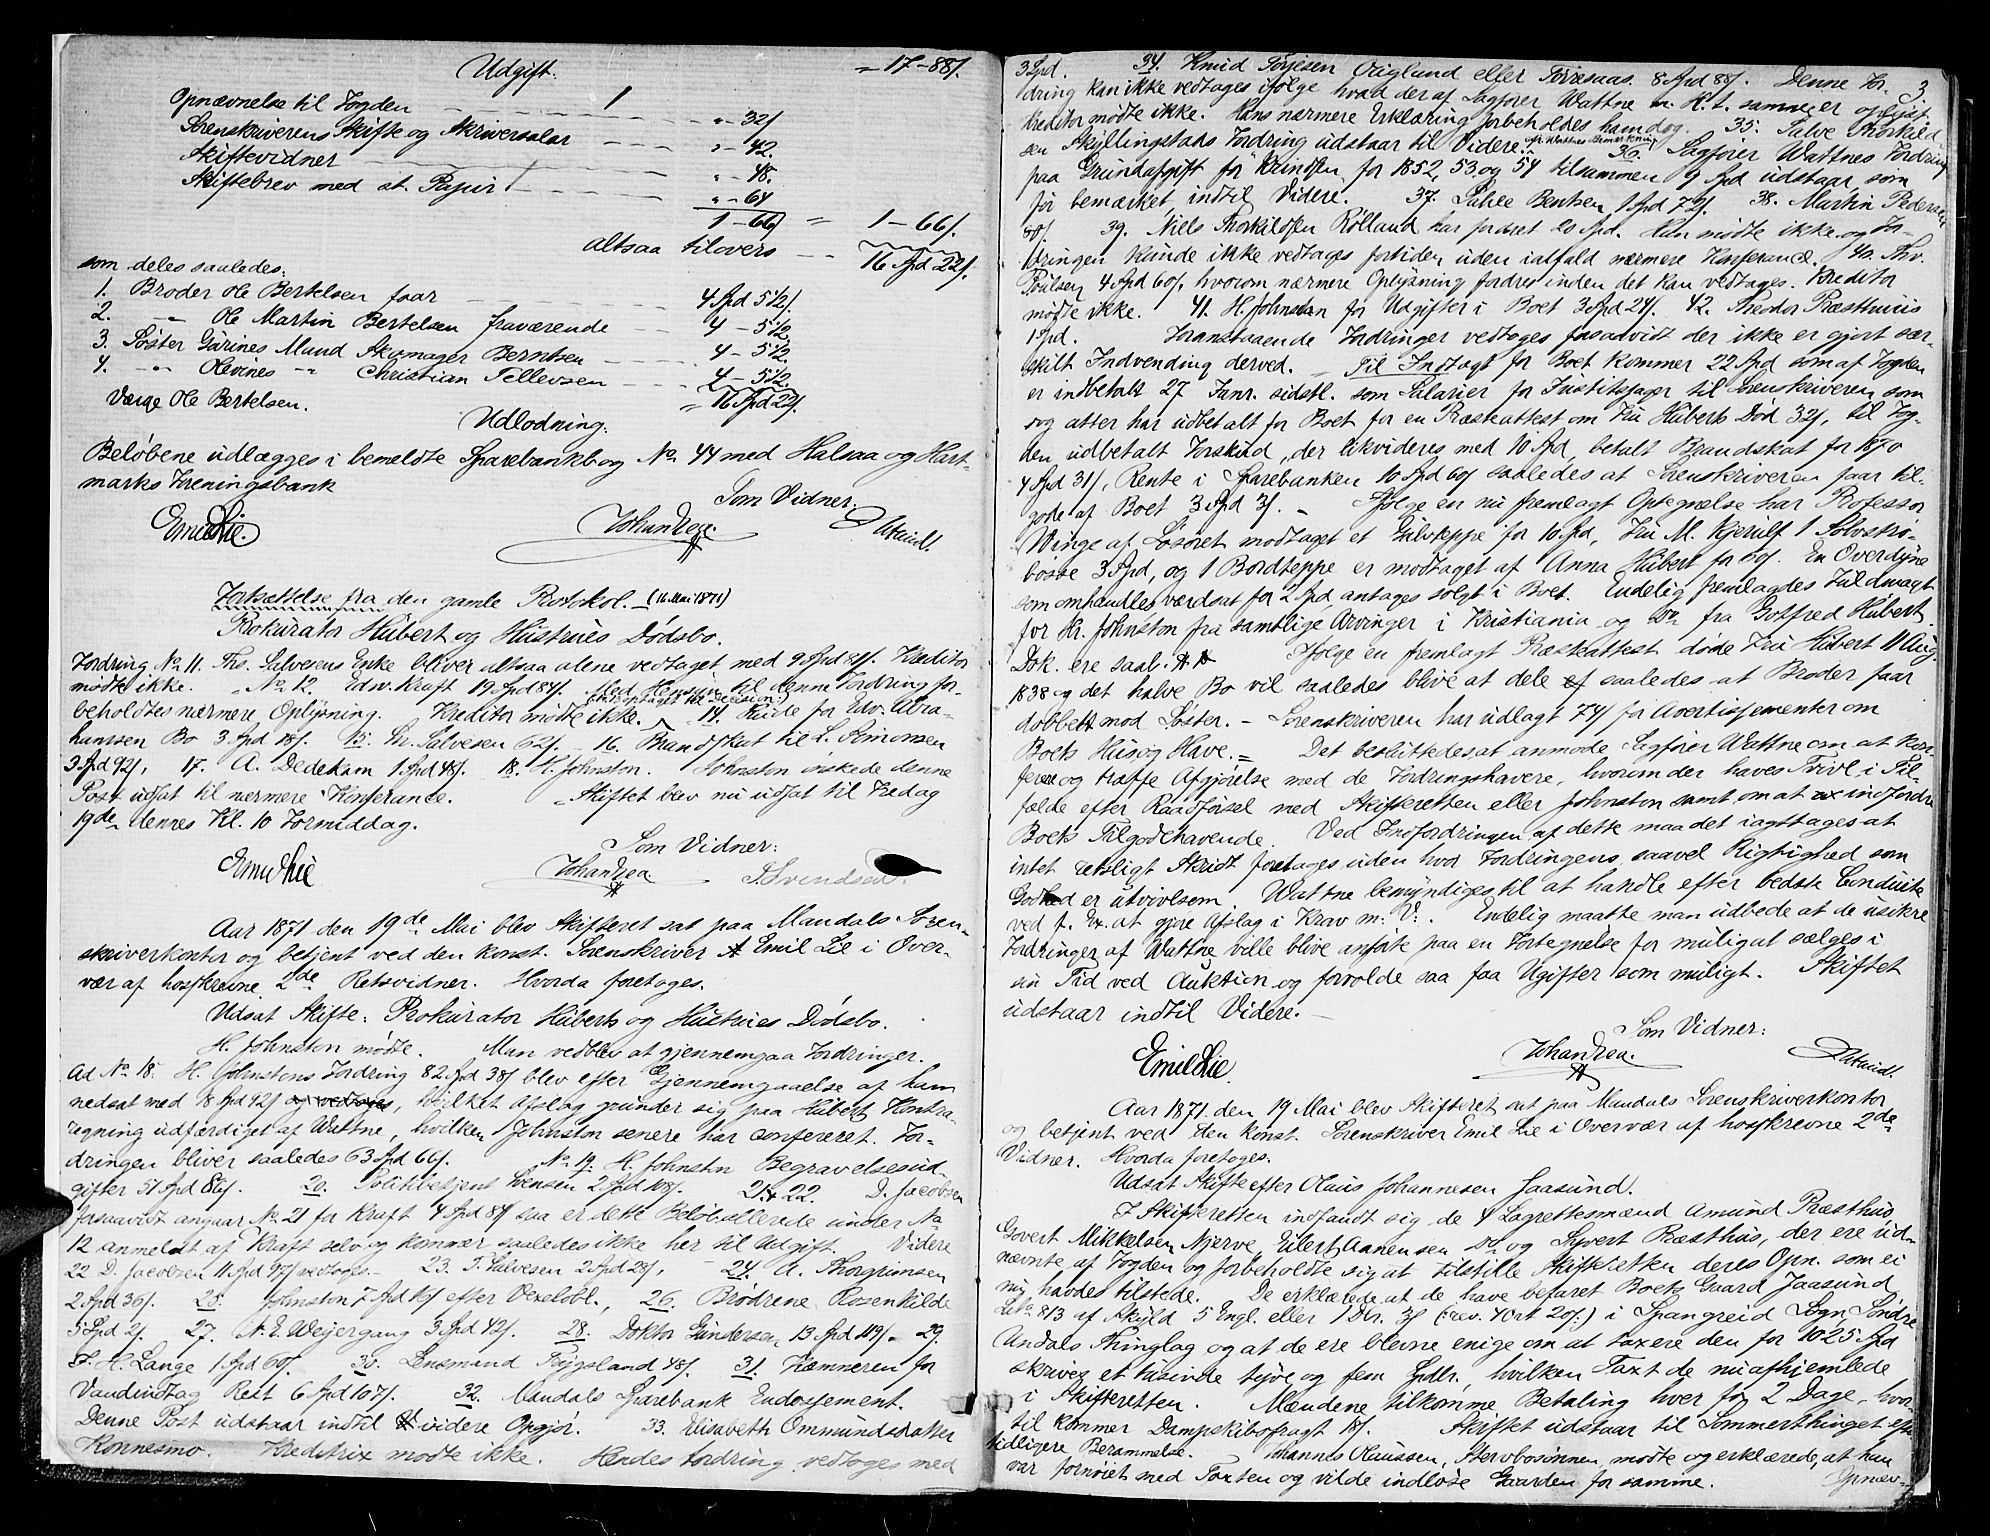 Udgift. „ 17-88ſ.
Opnævnelse til Fogden 1 „ - 32ſ
Sorenskriverens Skifte og Skriversalær „ - 42.
Skiftevidner „ - 48.
Skiftebrev med st. Papir „ - 64
1-66 = 1-66ſ.
altsaa tilovers 16 Spd 22ſ.
som deles saaledes:
1. Broder Ole Bertelsen faar 4 Spd 5½ſ.
2. -"- Ole Martin Bertelsen fraværende 4 - 5½.
3. Søster Gurines Mand Skomager Berntsen 4 - 5½.
4. -"- Olevines -"- Christian Tellevsen 4 - 5½.
Værge Ole Bertelsen. 16 Spd 22ſ.
Udlodning:
Beløbene udlægges i bemeldte Sparebankbog No 44 med Halsaa og Hart-
marks Foreningsbank
Som Vidner:
Emil Lie. Johan Rea.
Fortsættelse fra den gamle Protokol. (16 Mai 1871)
Prokurator Hubert og Hustrues Dødsbo.
Fordring No 11. Ths. Salvesens Enke bliver altsaa alene vedtaget med 9 Spd 81ſ. Kreditor
mødte ikke. No 12. Edw. Kraft 19 Spd 84ſ. Med Hensyn til denne Fordring for-
beholdtes nærmere Oplysning. Kreditor mødte ikke. 14. Rude for Edv. Abra-
hamsen Bo 3 Spd 18ſ. 15. Th. Salvesen 62ſ. 16. Brandskat til L. Simonsen
3 Spd 92ſ, 17. A. Dedekam 1 Spd 48ſ. 18. H. Johnston. Johnston ønskede denne
Post udsat til nærmere Konferance. Skiftet blev nu udsat til Fredag
19de dennes Kl. 10 Formiddag.
Som Vidner:
Emil Lie Johan Rea T. Svendsen.
Aar 1871 den 19de Mai blev Skifteret sat paa Mandals Soren-
skriverkontor og betjent ved den konst. Sorenskriver Emil Lie i Over-
vær af hosskrevne 2de Retsvidner. Hvorda foretoges.
Udsat Skifte: Prokurator Huberts og Hustrues Dødsbo.
H. Johnston mødte. Man vedblev at gjennemgaa Fordringer.
Ad No 18. H. Johnstons Fordring 82 Spd 38ſ blev efter Gjennemgaaelse af ham
nedsat med 18 Spd 92ſ og vedtoges, hvilket Afslag grunder sig paa Hubert Kontra-
regning udfærdiget af Wattne, hvilken Johnston senere har confereret. For-
dringen bliver saaledes 63 Spd 66ſ. No. 19. H. Johnston Begravelsesud-
gifter 51 Spd 86ſ. 20. Politibetjent Svensen 2 Spd 108ſ. 21 & 22. D. Jacobsen
forsaavidt angaar No 21 for Kraft 4 Spd 84ſ saa er dette Beløb allerede under No
12 anmeldt af Kraft selv og kommer saaledes ikke her til Udgift. Videre
22 D. Jacobsen 11 Spd 97ſ vedtoges. 23. T. Salvesen 2 Spd 28ſ, 24. A. Thorgrimsen
2 Spd 36ſ. 25. Johnston 7 Spd 16ſ efter Vexelobl., 26. Brødrene Rosenkilde
5 Spd 2ſ. 27. N. E. Weiergang 3 Spd 42ſ. 28. Doktor Gundersen 13 Spd 119ſ. 29.
S. H. Lange 1 Spd 60ſ. 30. Lensmand Frøysland 48ſ. 31. Kæmneren for
Vandindtag Rest 6 Spd 107ſ. 32. Mandals Sparebank Endossement.
Denne Post udstaar indtil videre Opgjør. 33. Elisabeth Ommundsdatter
Konnesmo. Kreditrix mødte ikke. Hendes Fordring vedtoges med
3
3 Spd. 34. Knud Tørjesen Øigland eller Tørresaas. 8 Spd 88ſ. Denne For-
dring kan ikke vedtages ifølge hvad der af Sagfører Wattne m. H. t. samme er oplyst.
Kreditor mødte ikke. Hans nærmere Erklæring forbeholdes ham dog. 35. Salve Thorkild-
sen Skyllingstads Fordring udstaar til Videre. 36. Sagfører Wattnes Fordring
paa Grundafgift for Knudsen for 1852, 53 og 54 tilsammen 9 Spd udstaar, som
før bemærket, indtil Videre. 37. Salve Bentsen 1 Spd 72ſ. 38. Martin Pedersen
80ſ. 39. Niels Thorkildsen Rølland har fordret 20 Spd. Han mødte ikke og For-
dringen kunde ikke vedtages fortiden uden ialfald nærmere Konferance. 40. Thv.
Poulsen 4 Spd 60ſ, hvorom nærmere Oplysning fordres inden det kan vedtages. Kreditor
mødte ikke. 41. H. Johnston for Udgifter i Boet 3 Spd 24ſ. 42. Theodor Præsthuus
1 Spd. Foranstaaende Fordringer vedtoges forsaavidt der ikke er gjort sær-
skilt Indvending derved. Til Indtægt for Boet kommer 22 Spd som af Fogden
er indbetalt 27 Janr. sidstl. som Salarier for Justitssager til Sorenskriveren som
og atter har udbetalt for Boet for en Præsteattest om Fru Huberts Død 32ſ, til Fog-
den udbetalt Forskud, der likvideres med 10 Spd, betalt Brandskat for 1870
4 Spd 31ſ, Rente i Sparebanken 10 Spd 60ſ saaledes at Sorenskriveren faar til-
gode af Boet 3 Spd 3ſ. Ifølge en nu fremlagt Optegnelse har Professor
Winge af Løsøret modtaget et Gulvteppe for 10 Spd, Fru M. Kjerulf 1 Sølvstrø-
bøsse 3 Spd, og 1 Bordteppe er modtaget af Anna Hubert for 60ſ. En Overdyne
som omhandles værdsat for 2 Spd antages solgt i Boet. Endelig fremlagdes Fuldmagt
for Hr. Johnston fra samtlige Arvinger i Kristiania og Do. fra Gotfred Hubert.
Dok. ere saal. Ifølge en fremlagt Præsteattest døde Fru Hubert 11 Aug.
1838 og det halve Bo vil saaledes blive at dele saaledes at Broder faar
dobbelt mod Søster. - Sorenskriveren har udlagt 74ſ for Avertissementer om
Boets Hus og Have. = Det besluttedes at anmode Sagfører Wattne om at kon-
ferere og træffe Afgjørelse med de Fordringshavere, hvorom der haves Tvivl, i Til-
fælde efter Raadførsel med Skifteretten eller Johnston samt om at indfordre
Boets Tilgodehavende. Ved Indfordringen af dette maa det iagttages at
intet retsligt Skridt foretages, uden hvor Fordringens saavel Rigtighed som
Godhed er utvivlsom. Wattne bemyndiges til at handle efter bedste Conduite
ved f. Ex. at gjøre Afslag i Krav m: V:. Endelig maatte man udbede at de usikre
Fordringer af Wattne ville blive anførte paa en Fortegnelse for muligat sælges i
sin Tid ved Auktion og forvolde saa faa Ugifter som muligt. Skiftet
udstaar indtil Videre.
Som Vidner:
Emil Lie. Johan Rea.
Aar 1871 den 19 Mai blev Skifteret sat paa Mandals Sorenskriverkontor
og betjent ved den konst. Sorenskriver Emil Lie i Overvær af hosskrevne 2de
Vidner. Hvorda foretoges.
Udsat Skifte efter Olaus Johannesen Jaasund.
I Skifteretten indfandt sig de 4 Lagrettesmænd Amund Præsthus
Govert Mikkelsen Njerve, Eilert Aanensen Do og Syvert Præsthus, der ere ud-
nævnte af Fogden og forbeholdte sig at tilstille Skifteretten deres Opn. som ei
nu havdes tilstede. De erklærede at de have befaret Boets Gaard Jaasund
Lb No. 813 af Skyld 5 Engl. eller 1 Dlr. 3ſ (: rev. 4 Ort 20ſ:) i Spangereid Sogn, Søndre
Undals Thinglag og at de ere blevne enige om at taxere den for 1025 Spd
skriver et tusinde tyve og fem Spdlr., hvilken Taxt de nu afhjemlede
i Skifteretten. Mændene tilkomme Betaling hver for 2 Dage, hvor-
til kommer Dampskibsfragt 18ſ. Skiftet udstaar til Sommerthinget efter
tidligere Berammelse. Johannes Olaussen, Stervbosønnen, mødte og erklærede, at han
var fornøiet med Taxten og vilde indløse Gaarden for samme. Opnæv-